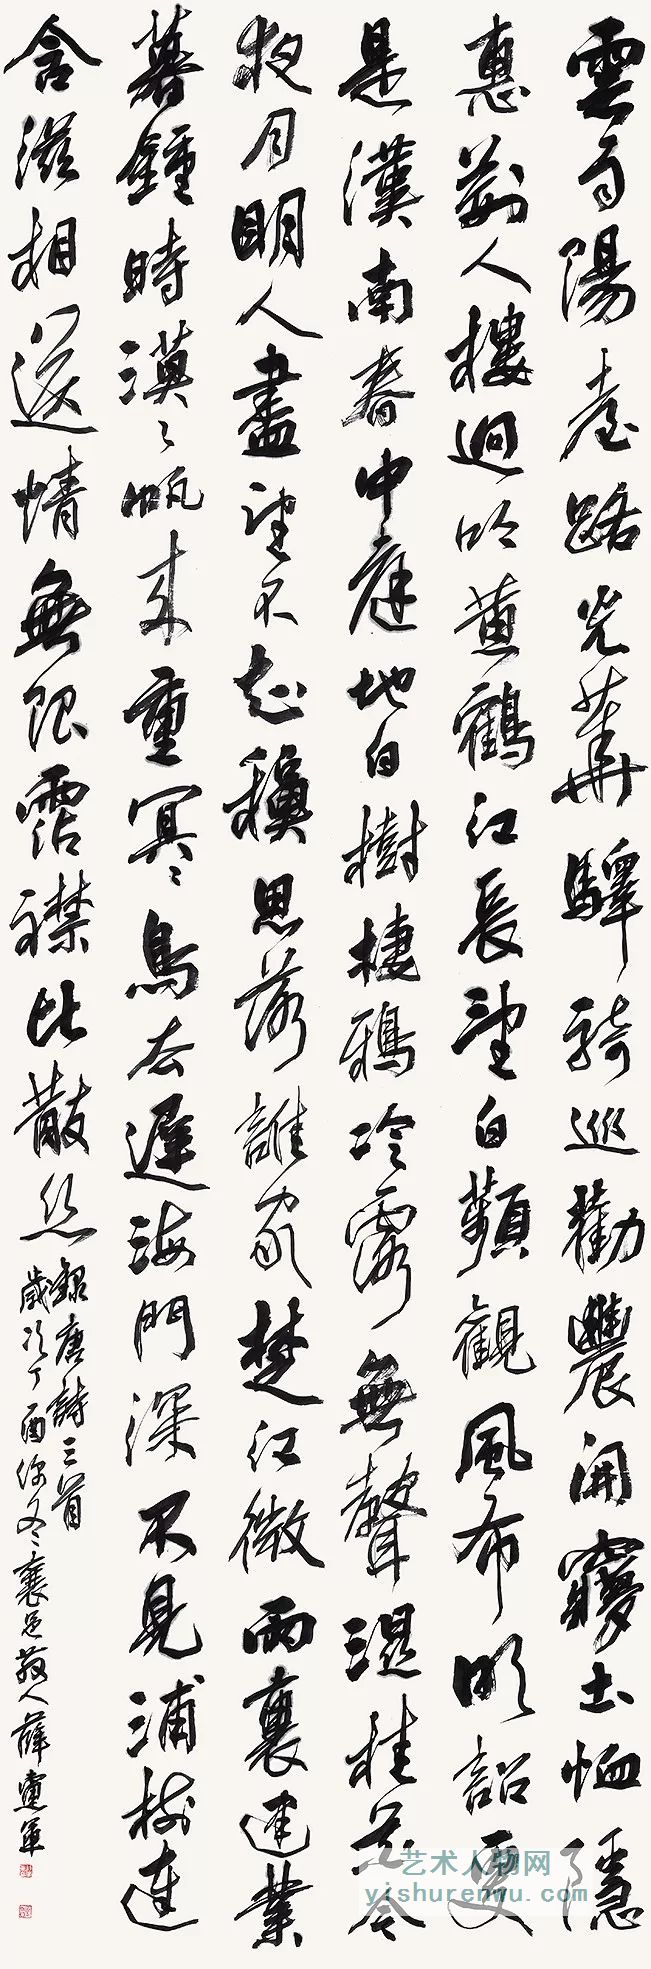 雲雨陽臺路光華驛騎巡勸農開夢土恤隱
惠荆人樓迥吟黄鶴江長望白蘋觀風布明詔更
是漢南春中庭地白樹棲鴉冷露無聲濕桂花今
夜月明人盡望不知穐思落誰家楚江微雨裏建業
暮鍾時漠漠帆來重冥冥鳥去遲海門深不見浦樹遠
含滋相送情無限霑襟比散絲
錄唐詩三首
歲次丁酉深冬襄邑散人薛憲軍
艺术人物网
yishurenwu.com